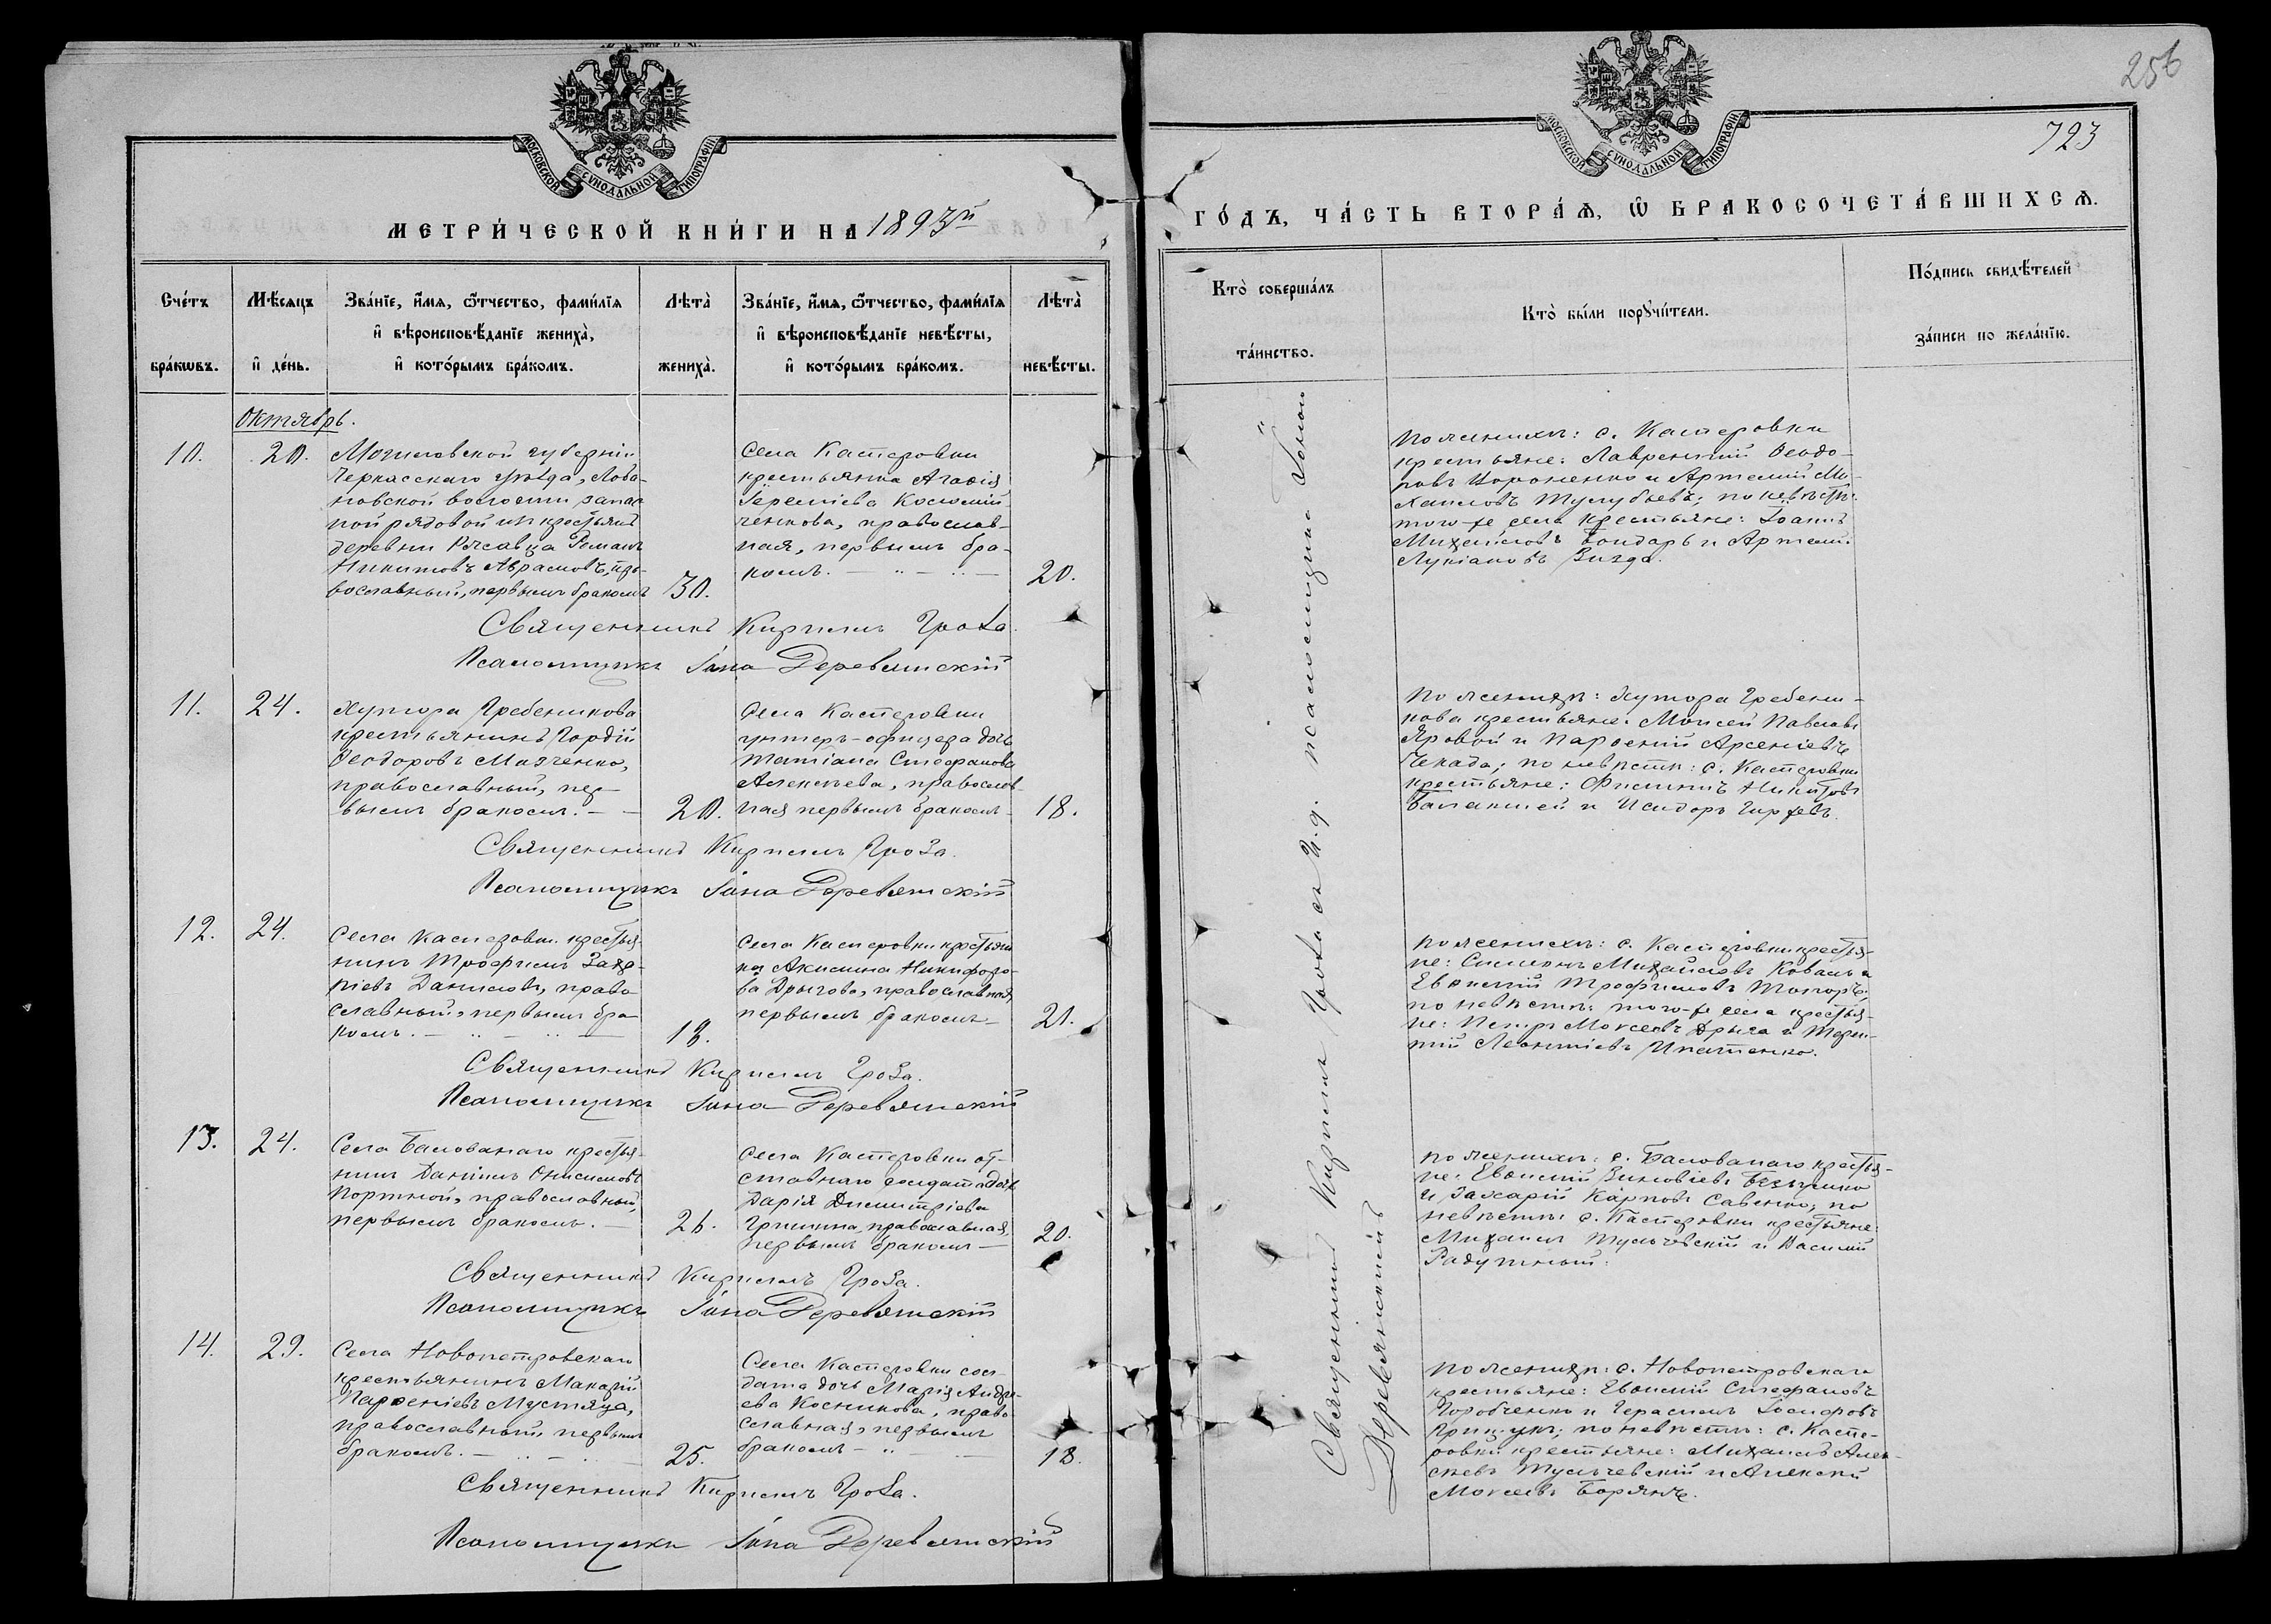 МОСКОВСКОЙ СѴНОДАЛЬНОЙ ТИПОГРАФІИ
МЕТРИ́ЧЕСКОЙ КНИ́ГИ НА 1893й
Сче́тъ бра́кѡвъ.
Мѣ́сяцъ и҆ де́нь.
Зва́нїе, и҆́мя, ѻ҆́тчество, фами́лїя
и҆ вѣроисповѣ́данїе жениха̀,
и҆ кото́рымъ бра́комъ.
Лѣта̀ жениха̀.
Зва́нїе, и҆́мя, ѻ҆́тчество, фами́лїя
и҆ вѣроисповѣ́данїе невѣ́сты,
и҆ кото́рымъ бра́комъ.
Лѣта̀ невѣ́сты.
Октябрь.
10.
20.
Могилевской губерніи
Черкасскаго уѣзда, Лоба-
новской волости запас
ной рядовой изъ крестьянъ
деревни Рясавца Романъ
Никитовъ Аврамовъ, пра-
вославный, первымъ бракомъ
30.
Села Касперовки
крестьянка Агафія
Іереміева
ченкова, православ-
ная, первымъ бра-
комъ.
20.
Священникъ Кириллъ Гроза.
Псаломщикъ Іона Деревянскій
11.
24.
Хутора Гребеникова
крестьянинъ Гордій
Ѳеодоровъ
православный, пер-
вымъ бракомъ.
20.
Села Касперовки
унтеръ-офицера дочь
Татіана Стефанова
Алексѣева, православ-
ная первымъ бракомъ
18.
Священникъ Кириллъ Гроза.
Псаломщикъ Іона Деревянскій
12.
24.
Села Касперовки крестья-
нинъ Трофимъ Заха-
ріевъ Даниловъ, право
славный, первымъ бра
комъ.
19.
Села Касперовки крестьян
ка Акилина Никифоро-
ва Дрыгова, православная,
первымъ бракомъ
21.
Священникъ Кириллъ Гроза.
Псаломщикъ Іона Деревянскій
13.
24.
Села Балованаго крестья-
нинъ Даніилъ Онисимовъ
Портной, православный,
первымъ бракомъ.
26.
Села Касперовки от-
ставнаго солдата дочь
Дарія Димитріева
Гришина, православная,
первымъ бракомъ
20.
Священникъ Кириллъ Гроза.
Псаломщикъ Іона Деревянскій
14.
29.
Села Новопетровскаго
крестьянинъ Макарій
Парѳеніевъ Мустяца,
православный, первымъ
бракомъ.
25.
Села Касперовки сол-
дата дочь Марія Андре-
ева Косникова, право
славная, первымъ
бракомъ
18.
Священникъ Кириллъ Гроза.
Псаломщикъ Іона Деревянскій
256
723
МОСКОВСКОЙ СѴНОДАЛЬНОЙ ТИПОГРАФІИ
ГО́ДЪ, ЧА́СТЬ ВТОРА́Ѧ, Ѽ БРАКОСОЧЕТА́ВШИХСѦ.
Кто̀ соверша́лъ
та́инство.
Кто̀ бы́ли порꙋчи́тели.
По́дпись свидѣ́телей
за́писи по жела́нїю.
Священникъ Кириллъ Гроза съ И. д. псаломщика Іоною
Деревянскій
по женихѣ: с. Касперовки
крестьяне: Лаврентій Ѳеодо-
ровъ Цороненко и Артемій Ми-
хаиловъ Тулубьевъ; по невѣстѣ:
того-же села крестьяне: Іоаннъ
Михайловъ Бондарь и Артемій
Лукіановъ
По женихѣ: Хутора Гребени-
кова крестьяне: Моисей Павловъ
Яровой и Парѳеній Арсеніевъ
Чекада; по невѣстѣ: с. Касперовки
крестьяне: Филиппъ Никитовъ
и Исидоръ
по женихѣ: с. Касперовки крестья-
не: Симеонъ Михайловъ Коваль и
Евѳимій Трофимовъ
по невѣстѣ: того-же села крестья-
не: Петръ Моѵсеевъ Дрыга и Терен-
тій Леонтіевъ Ипатенко.
по женихѣ: с. Балованаго крестья-
не: Евѳимій Зиновіевъ
и Захарій Карповъ Савенко; по
невѣстѣ: с. Касперовки крестьяне:
Михаилъ Тульчевскій и Василій
Радутный.
по женихѣ: с. Новопетровскаго
крестьяне: Евѳимій Стефановъ
Горобченко и Герасимъ Іосифовъ
Грищукъ; по невѣстѣ: с. Каспе-
ровки крестьяне: Михаилъ Алек-
сѣевъ Тульчевскій и Алексій
Моѵсеевъ